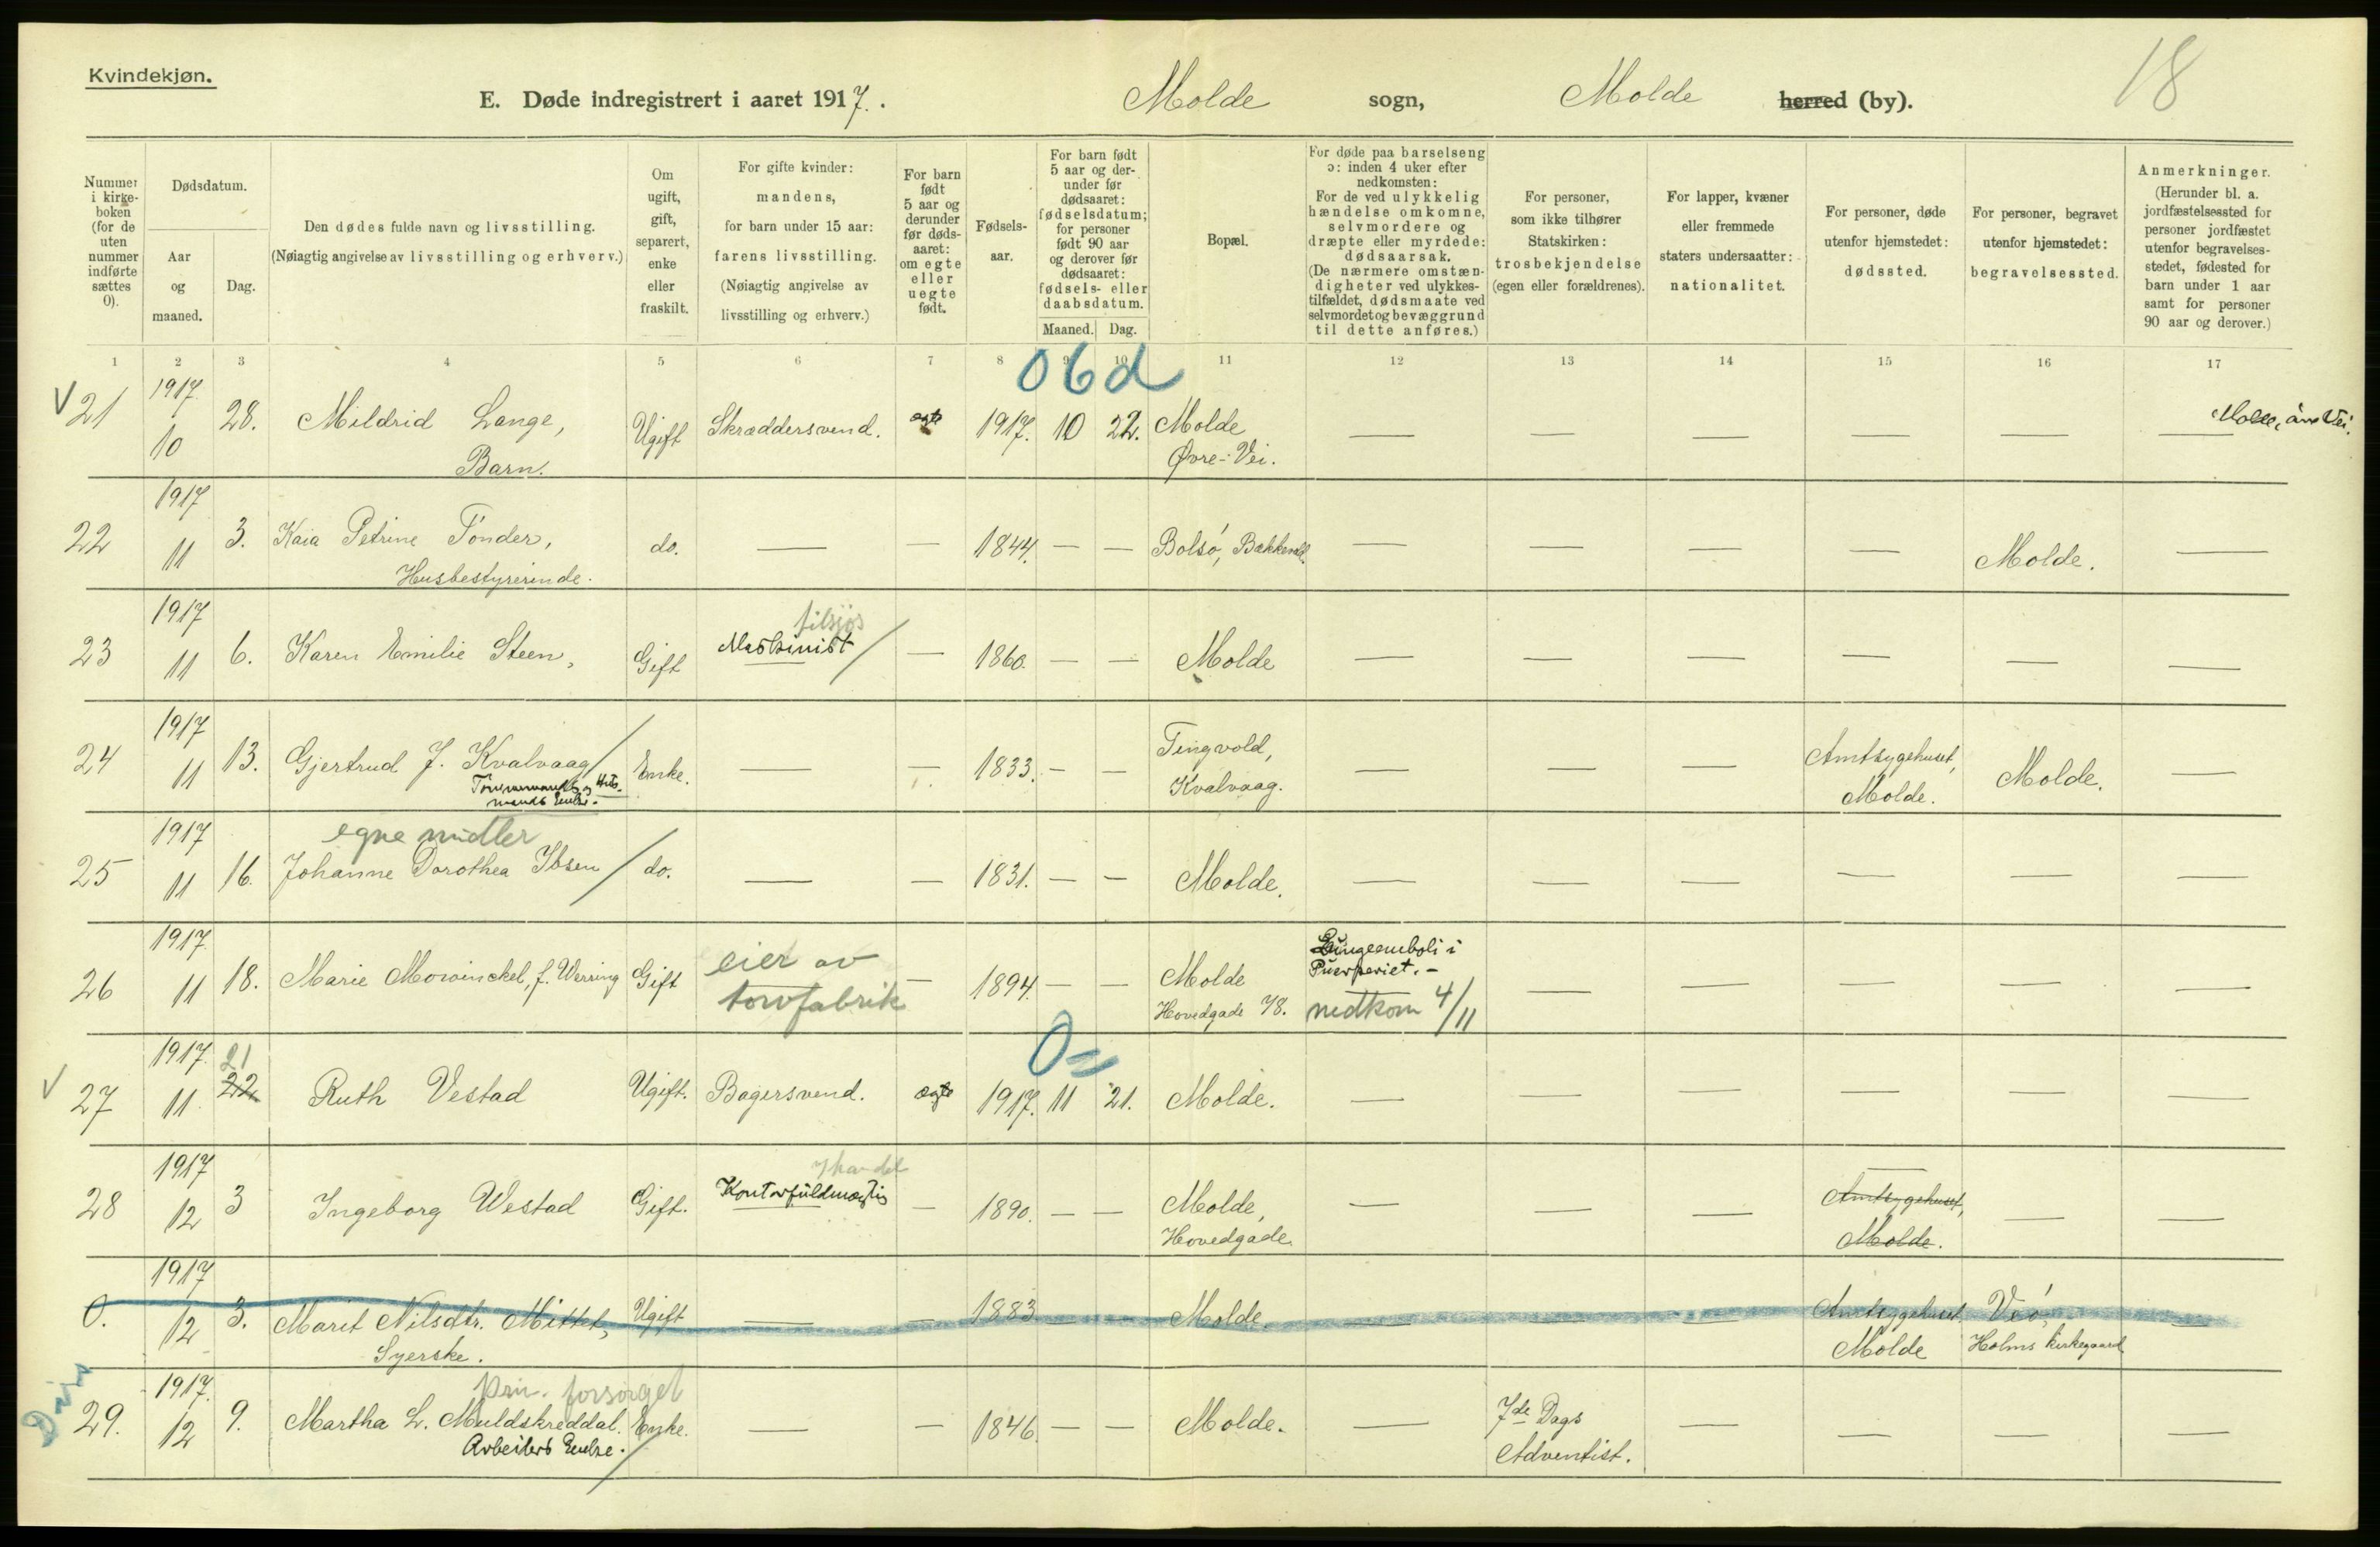 Kvindekjøn.
18
E. Døde indregistrert i aaret 1917. Molde sogn, Molde herred (by).
Nummer i kirke-boken (for de uten nummer indførte sættes 0).
Dødsdatum.
Aar og maaned.
Dag.
Den dødes fulde navn og livsstilling.
(Nøiagtig angivelse av livsstilling og erhverv.)
Om ugift, gift, separert, enke eller fraskilt.
For gifte kvinder: mandens, for barn under 15 aar: farens livsstilling. (Nøiagtig angivelse av livsstilling og erhverv.)
For barn født 5 aar og derunder før døds-aaret: om egte eller uegte født.
Fødsels-aar.
For barn født 5 aar og der-under før dødsaaret: fødselsdatum; for personer født 90 aar og derover før dødsaaret: fødsels- eller daabsdatum.
Maaned. Dag.
Bopæl.
For døde paa barselseng ɔ: inden 4 uker efter nedkomsten: For de ved ulykkelig hændelse omkomne, selvmordere og dræpte eller myrdede: dødsaarsak. (De nærmere omstæn-digheter ved ulykkes-tilfældet, dødsmaate ved selvmordet og bevæggrund til dette anføres.)
For personer, som ikke tilhører Statskirken: trosbekjendelse (egen eller forældrenes).
For lapper, kvæner eller fremmede staters undersaatter: nationalitet.
For personer, døde utenfor hjemstedet: dødssted.
For personer, begravet utenfor hjemstedet: begravelsessted.
Anmerkninger. (Herunder bl. a. jordfæstelsessted for personer jordfæstet utenfor begravelses-stedet, fødested for barn under 1 aar samt for personer 90 aar og derover.)
1 2 3 4 5 6 7 8 9 10 11 12 13 14 15 16 17
06d
V 21 1917. 10 28. Mildrid Lange, Ugift Skræddersvend. egte 1917. 10 22. Molde — — — — — —
Barn. Øvre-Vei.
22 1917 11 3. Kaia Petrine Tönder, do. — — 1844. — — Bolsö, — — — — Molde. —
Husbestyrerinde.
tilsjøs
23 1917 11 6. Karen Emilie Steen, Gift Maskinist — 1860. — — Molde — — — — — —
24 1917 11 13. Gjertrud J. Kvalvaag Enke. — — 1833. — — Tingvold, Kvalvaag. — — — Amtsygehuset, Molde. Molde. —
egne midler
25 1917 11 16. Johanne Dorothea Ibsen do. — — 1831. — — Molde. — — — — — —
26 1917. 11 18. Marie Mowinckel, f. Werring Gift eier av torvfabrik — 1894. — — Molde Hovedgade 78. Lungeemboli i Puerperiet. — nedkom 4/11 — — — — —
0
V 27 1917. 11 22 21 Ruth Vestad Ugift. Bagersvend. egte 1917. 11 21. Molde. — — — — — —
handel
28 1917 12 3 Ingeborg Westad Gift. Kontorfuldmægtig — 1890. — — Molde, Hovedgade. — — — Amtsygehuset, Molde. — —
0. 1917 12 3. Marit Nilsdtr. Mittet, Ugift — — 1883 — — Molde. — — — Amtsygehuset Molde Veö, Holms kirkegaard —
Syerske.
priv. forsørget
29. 1917. 12 9. Martha L. Muldskreddal. Enke. — — 1846. — — Molde. — 7de Dags Adventist. — — — —
Arbeiders Enke.